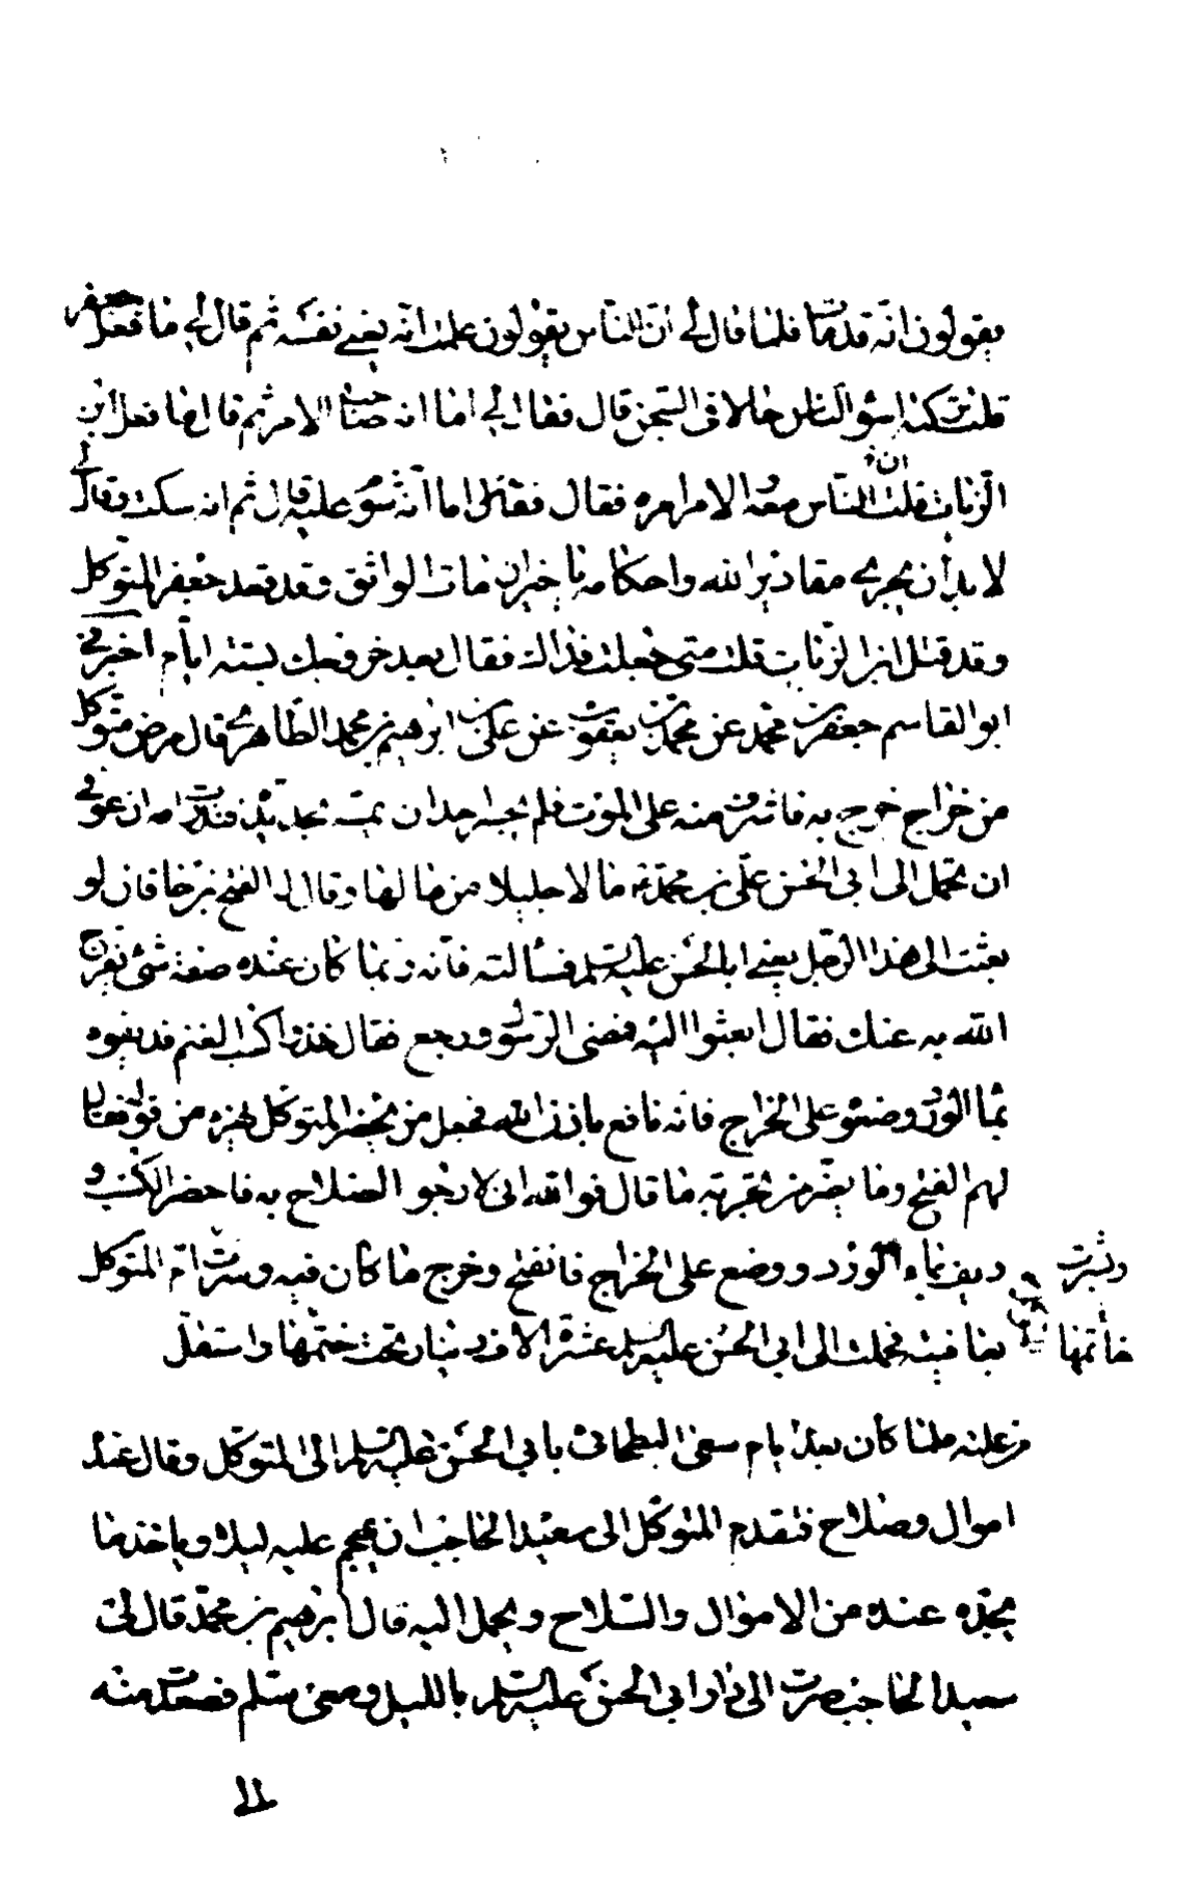 يقولون انه قد مات فلما قال لي ان الناس يقولون علمت انه يعني نفسه ثم قال لي ما فعل جعفر
قلت تركته اسوء الناس حالا في السجن قال فقال لي اما انه صاحب الامر ثم قال لي ما فعل ابن
الزيات قلت ان الناس معه الامر امره فقال فقال لي اما انه شوم عليه قال ثم انه سكت وقال لي
لا بد ان يجري مقادير الله واحكامه يا خيران مات الواثق وقد قعد جعفر المتوكل
وقد قتل ابن الزيات قلت متى جعلت فداك فقال بعد خروجك بستة ايام اخبرني
ابو القاسم جعفر بن محمد عن محمد بن يعقوب عن علي بن ابرهيم بن محمد الطاهري قال مرض متوكل
من خراج خرج به فاشرف منه على الموت فلم يجسر احد ان يمسه بحديد فنذرت امه ان عوفي
ان تحمل الى ابي الحسن علي بن محمد مالا جليلا من مالها وقال له الفتح بن خاقان لو
بعثت الى هذا الرجل يعني ابا الحسن عليه السلم فسألته فانه ربما كان عنده صفة شئ يفرج
الله به عنك فقال ابعثوا اليه فمضى الرسول ورجع فقال خذوا كسب الغنم فديفوه
بماء الورد وضعوه على الخراج فانه نافع باذن الله فجعل من بحضر المتوكل يهزء من قوله فقال
لهم الفتح وما يضر من تجربة ما قال فوالله اني لارجو الصلاح به فاحضر الكسب و
ديف بماء الورد ووضع على الخراج فانفتح وخرج ما كان فيه وسرت ام المتوكل
وبشرت
بعافيته فحملت الى ابي الحسن عليه السلم عشرة الاف دينار تحت ختمها واستقل
خاتمها
من علته فلما كان بعد ايام سعى البطحاني بابي الحسن عليه السلم الى المتوكل وقال عنده
اموال وصلاح فتقدم المتوكل الى سعيد الحاجب ان يهجم عليه ليلا وياخذ ما
يجده عنده من الاموال والسلاح ويحمل اليه قال ابرهيم بن محمد قال لي
سعيد الحاجب صرت الى دار ابي الحسن عليه السلم بالليل ومعي سلم فصعدت منه